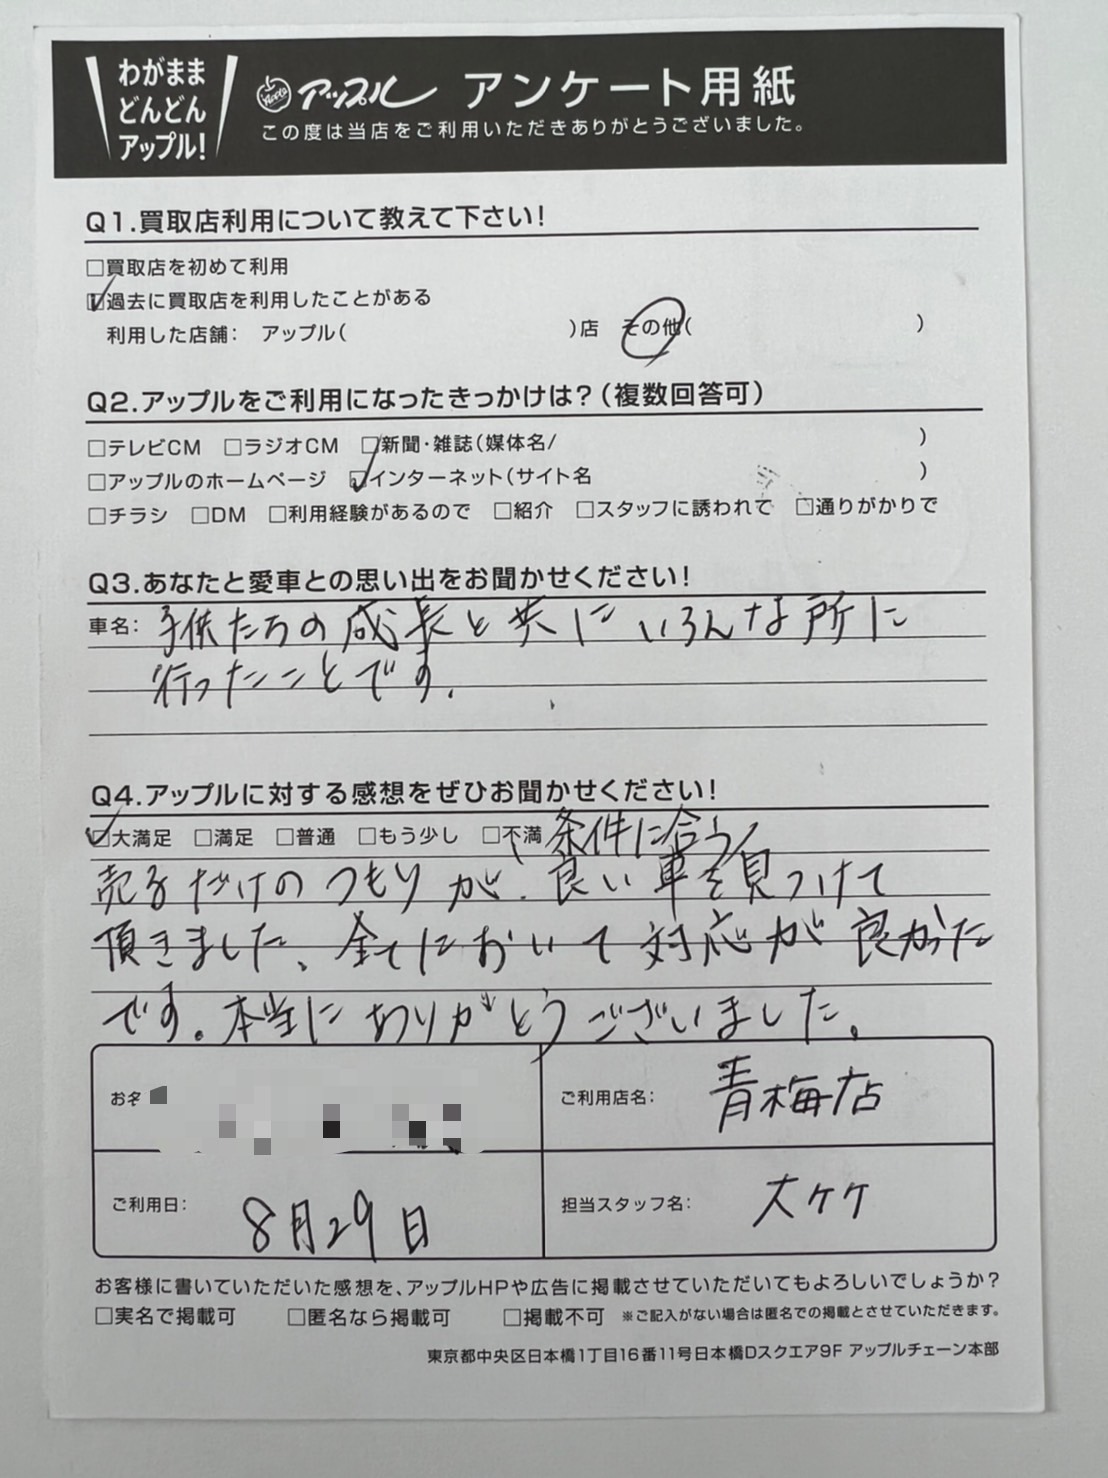 わがまま
どんどん
アップル!
アップル アンケート用紙
この度は当店をご利用いただきありがとうございました。
Q1.買取店利用について教えて下さい!
□買取店を初めて利用
☑過去に買取店を利用したことがある
利用した店舗: アップル( )店 その他( )
Q2.アップルをご利用になったきっかけは?(複数回答可)
□テレビCM □ラジオCM □新聞・雑誌(媒体名/ )
□アップルのホームページ ☑インターネット(サイト名 )
□チラシ □DM □利用経験があるので □紹介 □スタッフに誘われて □通りがかりで
Q3.あなたと愛車との思い出をお聞かせください!
車名: 子供たちの成長と共にいろんな所に
行ったことです.
Q4.アップルに対する感想をぜひお聞かせください!
☑大満足 □満足 □普通 □もう少し □不満 条件に合う
売るだけのつもりが、良い車を見つけて
頂きました、全てにおいて対応が良かった
です。本当にありがとうございました。
お名
ご利用店名: 青梅店
ご利用日: 8月29日
担当スタッフ名: 大ケケ
お客様に書いていただいた感想を、アップルHPや広告に掲載させていただいてもよろしいでしょうか?
□実名で掲載可 □匿名なら掲載可 □掲載不可 ※ご記入がない場合は匿名での掲載とさせていただきます。
東京都中央区日本橋1丁目16番11号日本橋Dスクエア9F アップルチェーン本部